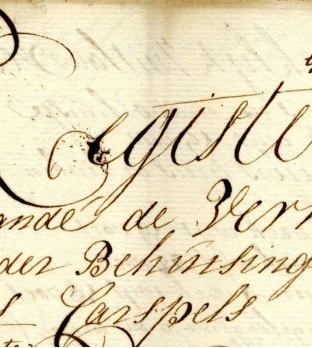 Registe
ande de Ver
der Behuising
s Carspels